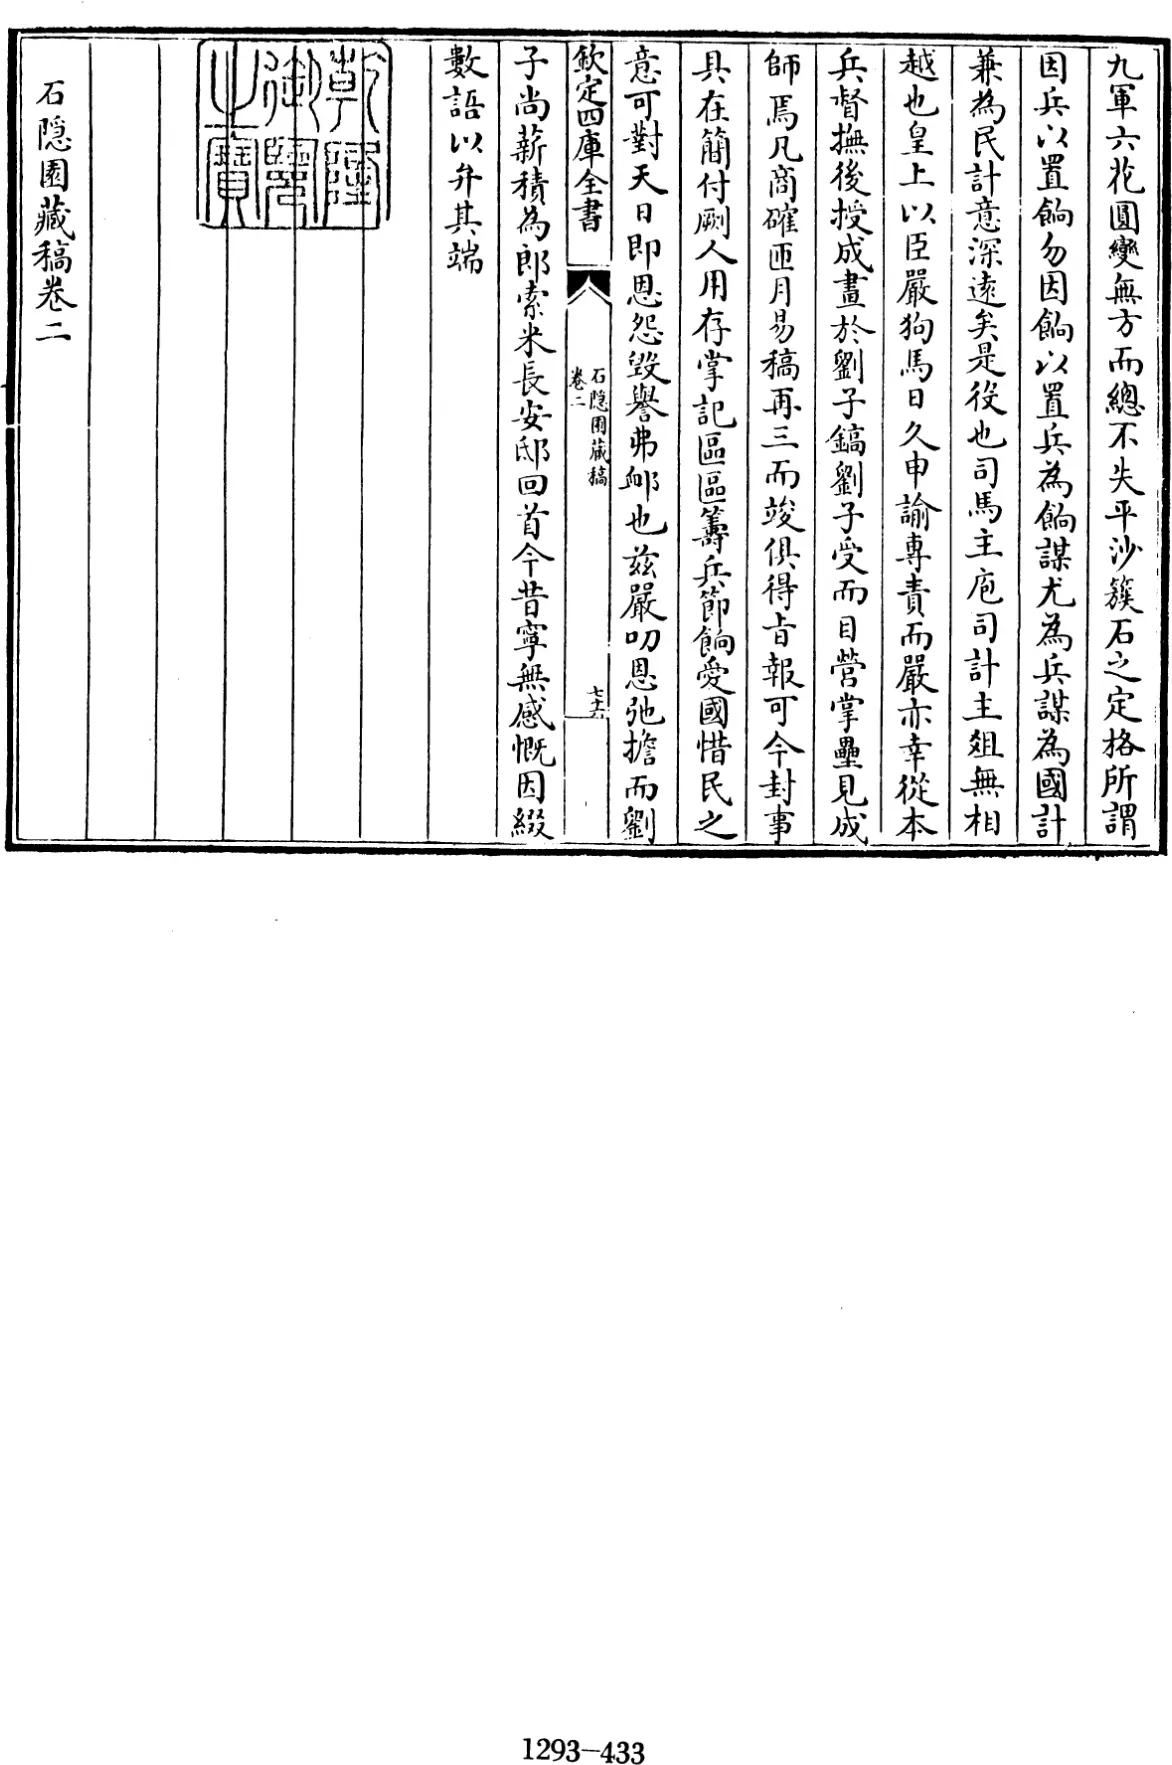 九軍六花圓變無方而總不失平沙簇石之定格所謂
因兵以置餉勿因餉以置兵為餉謀尤為兵謀為國計
兼為民計意深逺矣是役也司馬主庖司計主爼無相
越也皇上以臣嚴狗馬日久申諭專責而嚴亦幸從本
兵督撫後授成畫於劉子鎬劉子受而目營掌壘見成
師焉凡商確匝月易稿再三而竣俱得㫖報可今封事
具在簡付劂人用存掌記區區籌兵節餉愛國惜民之
意可對天日即恩怨毀譽弗䘏也茲嚴叨恩弛擔而劉
欽定四庫全書
石隠園藏稿
卷二
七十六
子尚薪積為郎索米長安邸回首今昔寧無感慨因綴
數語以弁其端
乾隆御覽之寶
石隠園藏稿卷二
1293-433